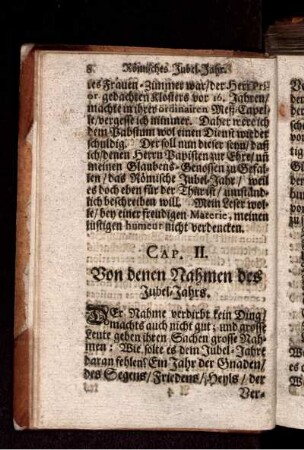 8 Römisches Jubel-Jahr.
tes Frauen-Zimmer war/ der Herr Pri-
or gedachten Klosters vor 16. Jahren/
machte in ihrer ordinairen Meß-Capel-
le/ vergesse ich nimmer. Daher were ich
dem Pabstum wol einen Dienst wieder
schuldig. Der soll nun dieser seyn/ daß
ich/ denen Herrn Papisten zur Ehre/ uñ
meinen Glaubens-Genossen zu Gefal-
len/ das Römische Jubel-Jahr/ weil
es doch eben für der Thür ist/ umständ-
lich beschreiben will. Mein Leser wol-
le/ bey einer freudigen Materie, meinen
lustigen humeur nicht verdencken.
CAP. II.
Von denen Nahmen des
Jubel-Jahrs.
DEr Nahme verdirbt kein Ding/
machts auch nicht gut; und grosse
Leute geben ihren Sachen grosse Nah-
men: Wie solte es dem Jubel-Jahre
daran fehlen? Ein Jahr der Gnaden/
des Segens/ Friedens/ Heyls/ der
Ver-